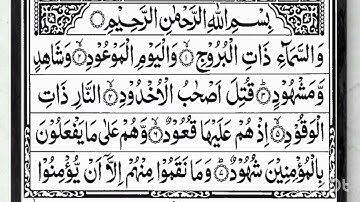 بِسْمِ اللهِ الرَّحْمٰنِ الرَّحِيْمِ
وَالسَّمَآءِ ذَاتِ الْبُرُوْجِ ۙ‏﴿۱﴾ وَالْيَوْمِ الْمَوْعُوْدِ ۙ‏﴿۲﴾ وَشَاهِدٍ
وَّمَشْهُوْدٍ ؕ‏﴿۳﴾ قُتِلَ اَصْحٰبُ الْاُخْدُوْدِ ۙ‏﴿۴﴾ النَّارِ ذَاتِ
الْوَقُوْدِ ۙ‏﴿۵﴾ اِذْ هُمْ عَلَيْهَا قُعُوْدٌ ۙ‏﴿۶﴾ وَّهُمْ عَلٰى مَا يَفْعَلُوْنَ
بِالْمُؤْمِنِيْنَ شُهُوْدٌ ؕ‏﴿۷﴾ وَمَا نَقَمُوْا مِنْهُمْ اِلَّاۤ اَنْ يُّؤْمِنُوْا